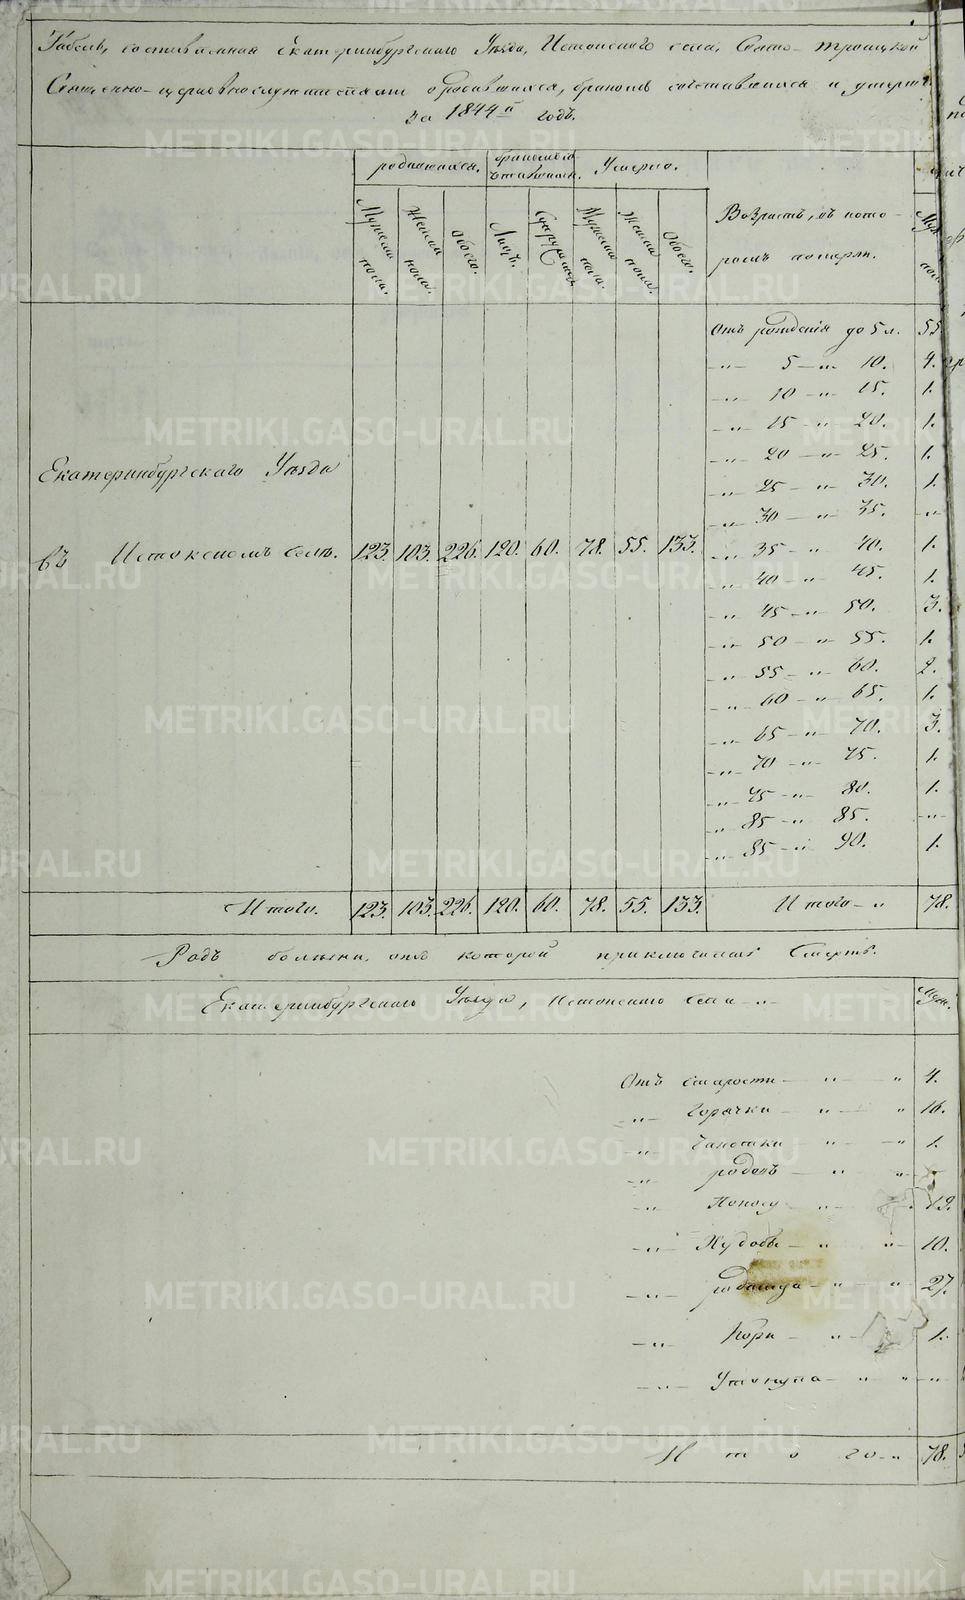 Табель, составленная Екатеринбургскаго Уѣзда, Истокскаго села, Свято-Троицкой
Священно-церковнослужителями о родившихся, бракомъ сочетавшихся и умерш
за 1844й годъ.
родившихся. бракомъ Умерло.
Мужеска пола. Женска пола. Обоего. Лицъ. Супружествъ Мужеска пола. Женска пола. Обоего.
Возрастъ, въ кото-
ромъ померли.
Муж. пол.
Отъ рожденія до 5 л. 55
-"- 5 -"- 10. 4.
-"- 10 -"- 15. 1.
-"- 15 -"- 20. 1.
-"- 20 -"- 25. 1.
-"- 25 -"- 30. 1.
-"- 30 -"- 35. -"-
Екатеринбургскаго Уѣзда
въ Истокскомъ селѣ. 123. 103. 226. 120. 60. 78. 55. 133.
-"- 35 -"- 40. 1.
-"- 40 -"- 45. 1.
-"- 45 -"- 50. 3.
-"- 50 -"- 55. 1.
-"- 55 -"- 60. 2.
-"- 60 -"- 65. 1.
-"- 65 -"- 70. 3.
-"- 70 -"- 75. 1.
-"- 75 -"- 80. 1.
-"- 85 -"- 85. -"-
-"- 85 -"- 90. 1.
Итого. 123. 103. 226. 120. 60. 78. 55. 133. Итого -" 78.
Родъ болѣзни, отъ которой приключилась Смерть.
Екатеринбургскаго Уѣзда, Истокскаго села -"- Муж.
Отъ старости - " - " 4.
-"- Горячки - " - " 16.
-"- Чахотки - " - " 1.
-"- родовъ - " - "
-"- Поносу - " - 19.
-"- Худобы - " - " 10.
-"- родимца - " - " 27.
-"- Кори - " - 1.
-"- Утонула - " - " -"-
Итого -" 78.
METRIKI.GASO-URAL.RU